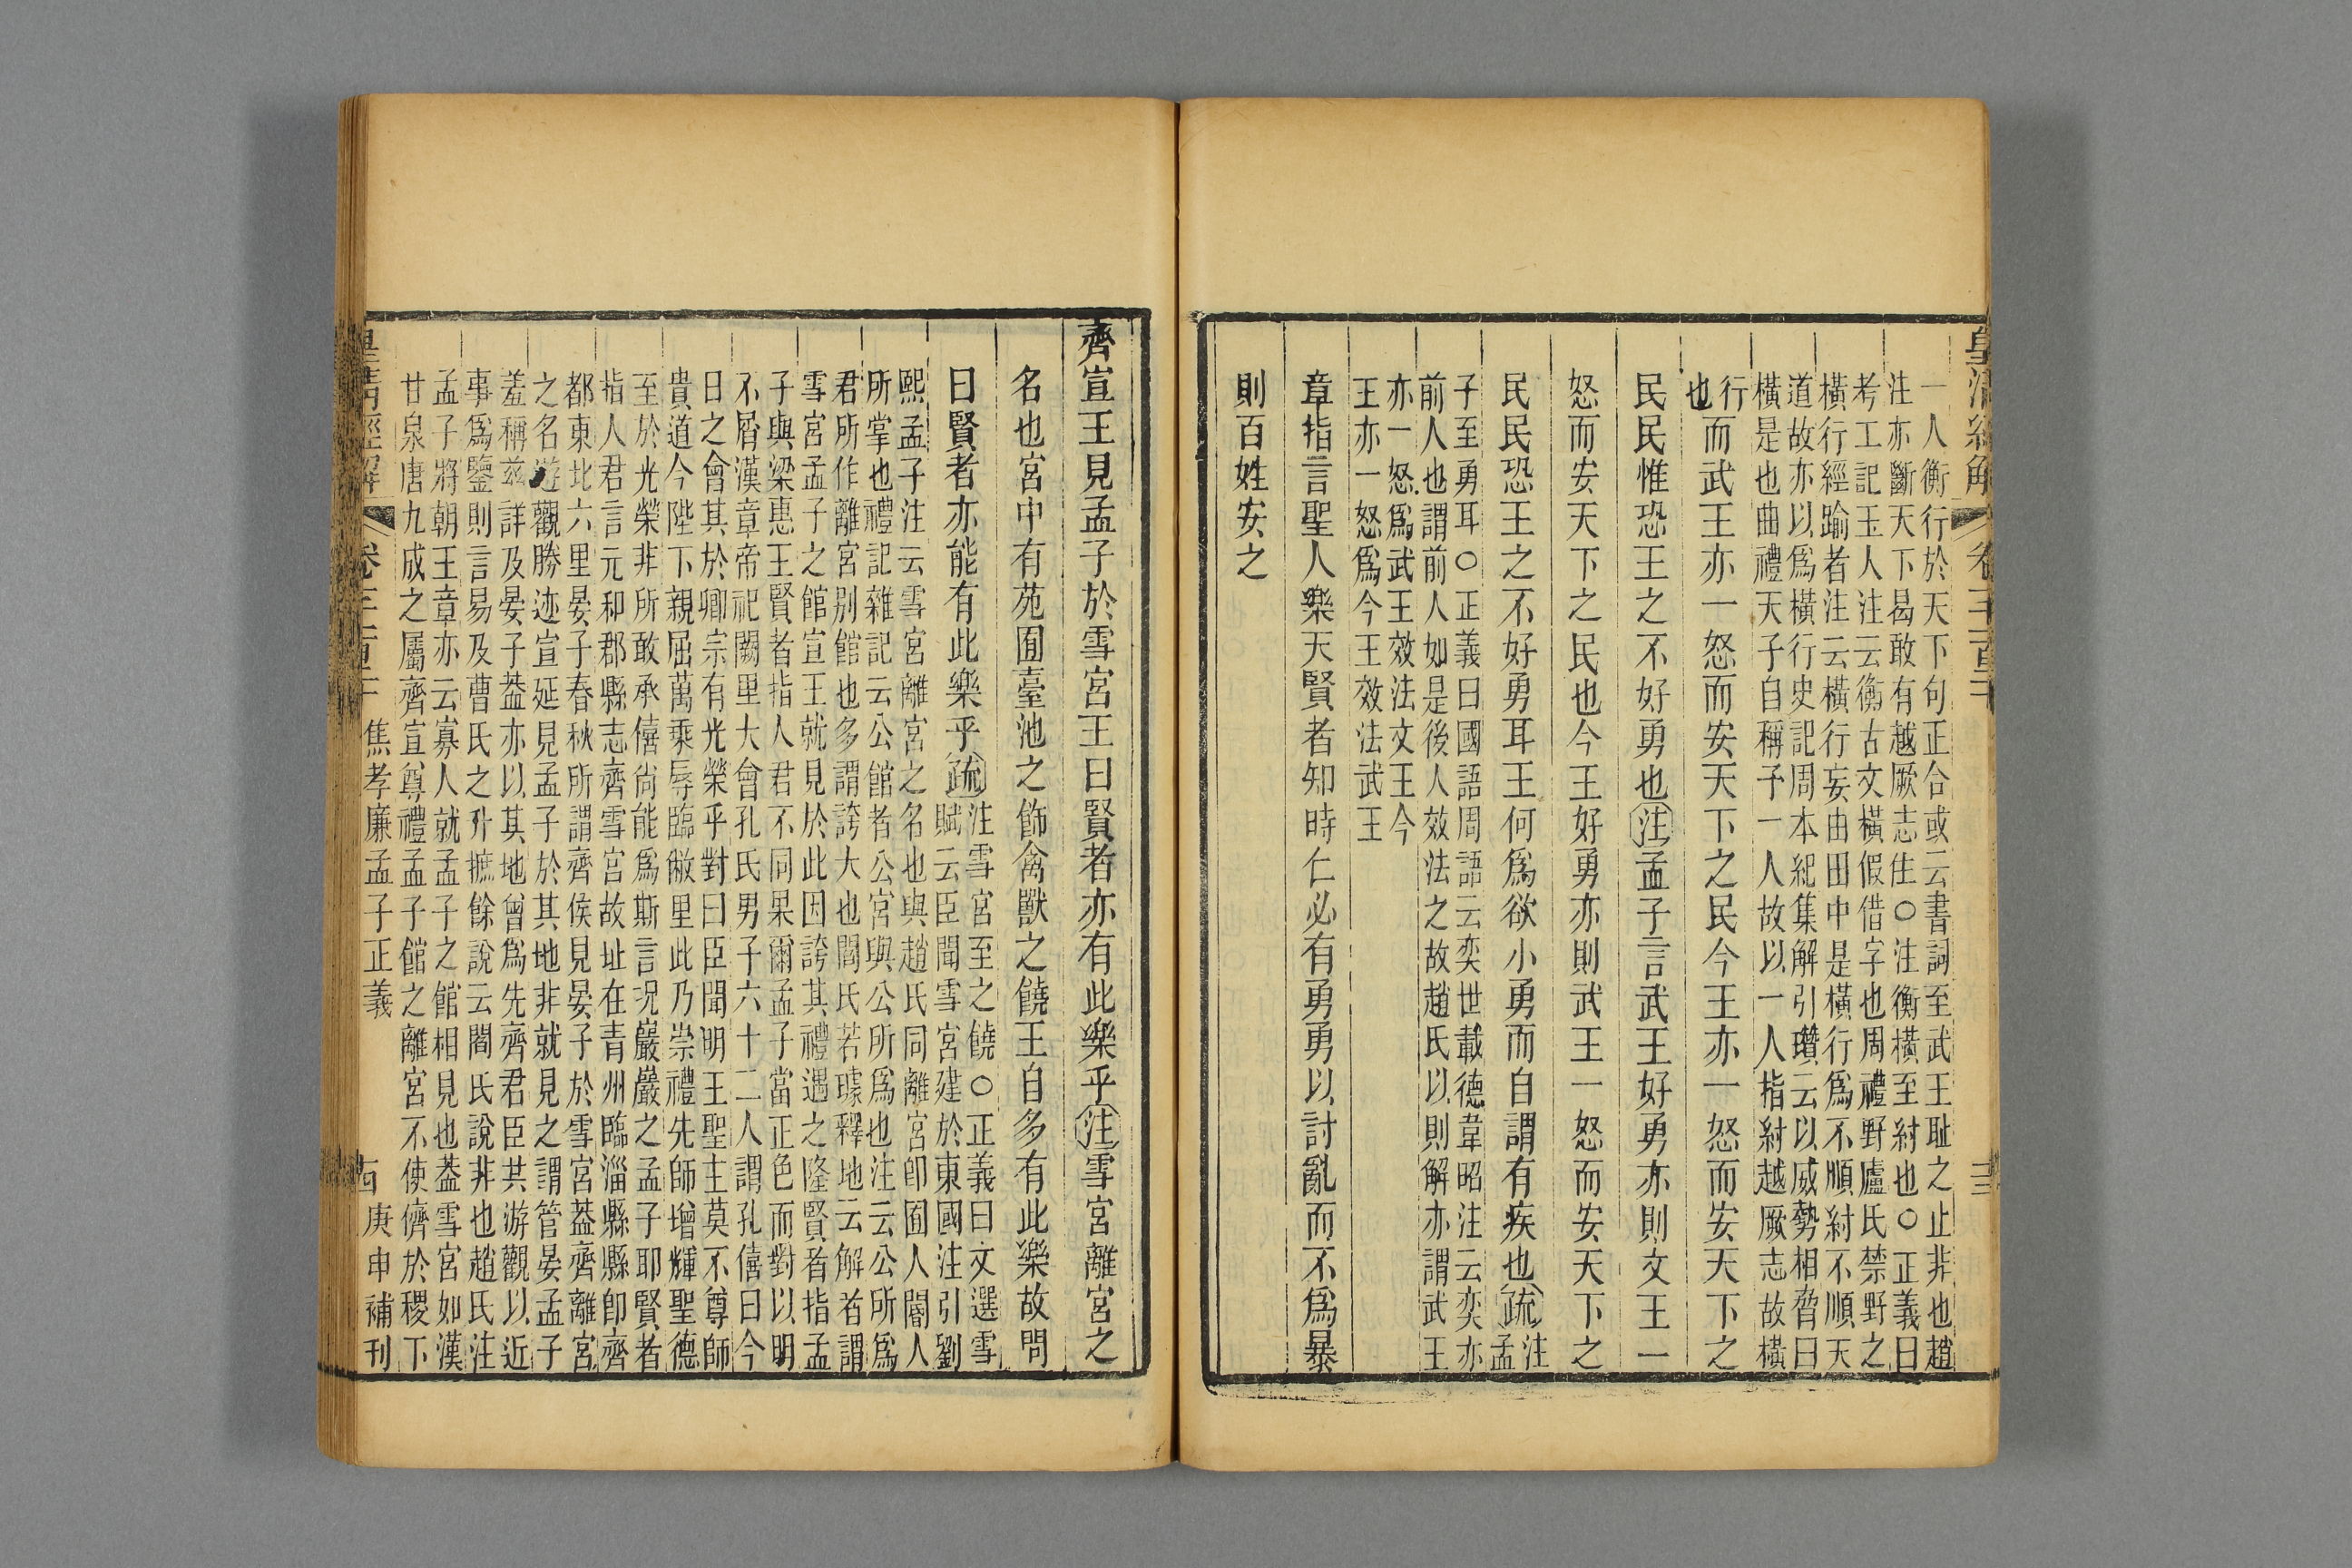 一人衡行於天下句正合或云書詞至武王耻之止非也趙
注亦斷天下曷敢有越厥志住○注衡橫至紂也○正義曰
考工記玉人注云衡古文橫假借字也周禮野廬氏禁野之
橫行經踰者注云橫行妄由田中是橫行爲不順紂不順天
道故亦以爲橫行史記周本紀集解引瓚云以威勢相脅曰
橫是也曲禮天子自稱予一人故以一人指紂越厥志故橫
行
也
而武王亦一怒而安天下之民今王亦一怒而安天下之
民民惟恐王之不好勇也注孟子言武王好勇亦則文王一
怒而安天下之民也今王好勇亦則武王一怒而安天下之
民民恐王之不好勇耳王何爲欲小勇而自謂有疾也疏注
孟
子至勇耳○正義曰國語周語云奕世載德韋昭注云奕亦
前人也謂前人如是後人效法之故趙氏以則解亦謂武王
亦一怒爲武王效法文王今
王亦一怒爲今王效法武王
章指言聖人樂天賢者知時仁必有勇勇以討亂而不爲暴
則百姓安之
齊宣王見孟子於雪宮王曰賢者亦有此樂乎注雪宮離宮之
名也宮中有苑囿臺池之飾禽獸之饒王自多有此樂故問
曰賢者亦能有此樂乎疏
注雪宮至之饒○正義曰文選雪
賦云臣聞雪宮建於東國注引劉
熙孟子注云雪宮離宮之名也與趙氏同離宮卽囿人閽人
所掌也禮記雜記云公館者公宮與公所爲也注云公所爲
君所作離宮別館也多謂誇大也閻氏若璩釋地云解者謂
雪宮孟子之館宣王就見於此因誇其禮遇之隆賢者指孟
子與梁惠王賢者指人君不同果爾孟子當正色而對以明
不屑漢章帝祀闕里大會孔氏男子六十二人謂孔僖曰今
日之會其於卿宗有光榮乎對曰臣聞明王聖主莫不尊師
貴道今陛下親屈萬乘辱臨敝里此乃崇禮先師增輝聖德
至於光榮非所敢承僖尙能爲斯言况巖巖之孟子耶賢者
指人君言元和郡縣志齊雪宮故址在青州臨淄縣縣卽齊
都東北六里晏子春秋所謂齊侯見晏子於雪宮葢齊離宮
之名遊觀勝迹宣延見孟子於其地非就見之謂管晏孟子
羞稱兹詳及晏子葢亦以其地曾爲先齊君臣共游觀以近
事爲鑒則言易及曹氏之升摭餘說云閻氏說非也趙氏注
孟子將朝王章亦云寡人就孟子之館相見也葢雪宮如漢
甘泉唐九成之屬齊宣尊禮孟子館之離宮不使儕於稷下
焦孝廉孟子正義
庚申補刊